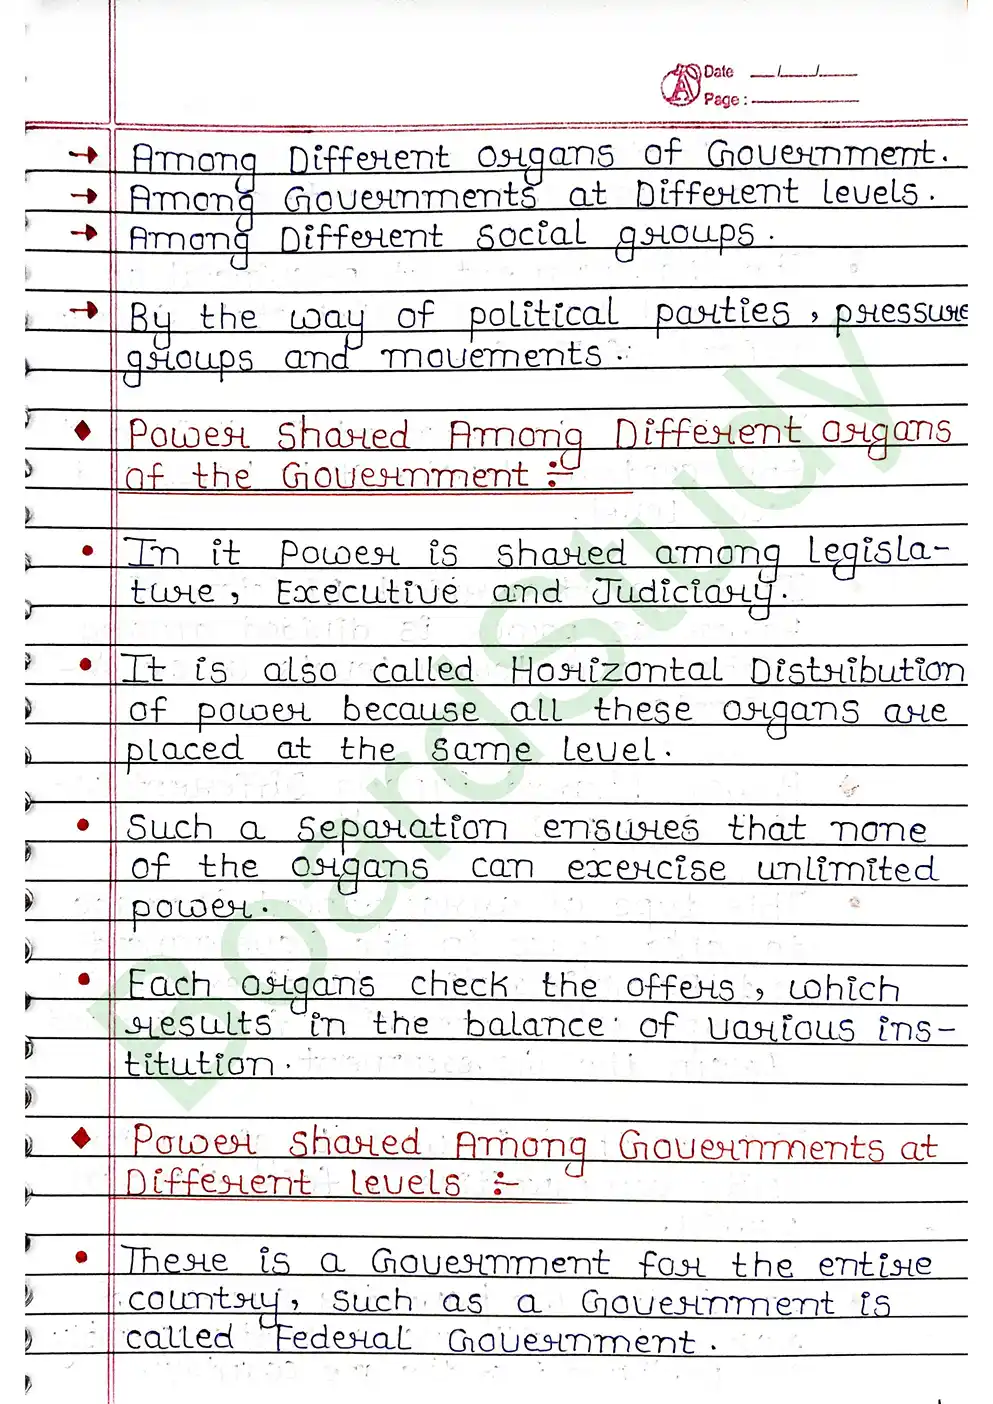 Date __/__/__
Page :
→ Among Different organs of Government.
→ Among Governments at Different levels.
→ Among Different social groups.
→ By the way of political parties, pressure
groups and movements.
♦ Power shared Among Different organs
of the Government :-
• In it Power is shared among legisla-
ture, Executive and Judiciary.
• It is also called Horizontal Distribution
of power because all these organs are
placed at the same level.
• Such a separation ensures that none
of the organs can exercise unlimited
power.
• Each organs check the offers, which
results in the balance of various ins-
titution.
♦ Power shared Among Governments at
Different levels :-
• There is a Government for the entire
country, such as a Government is
called Federal Government.
BoardStudy